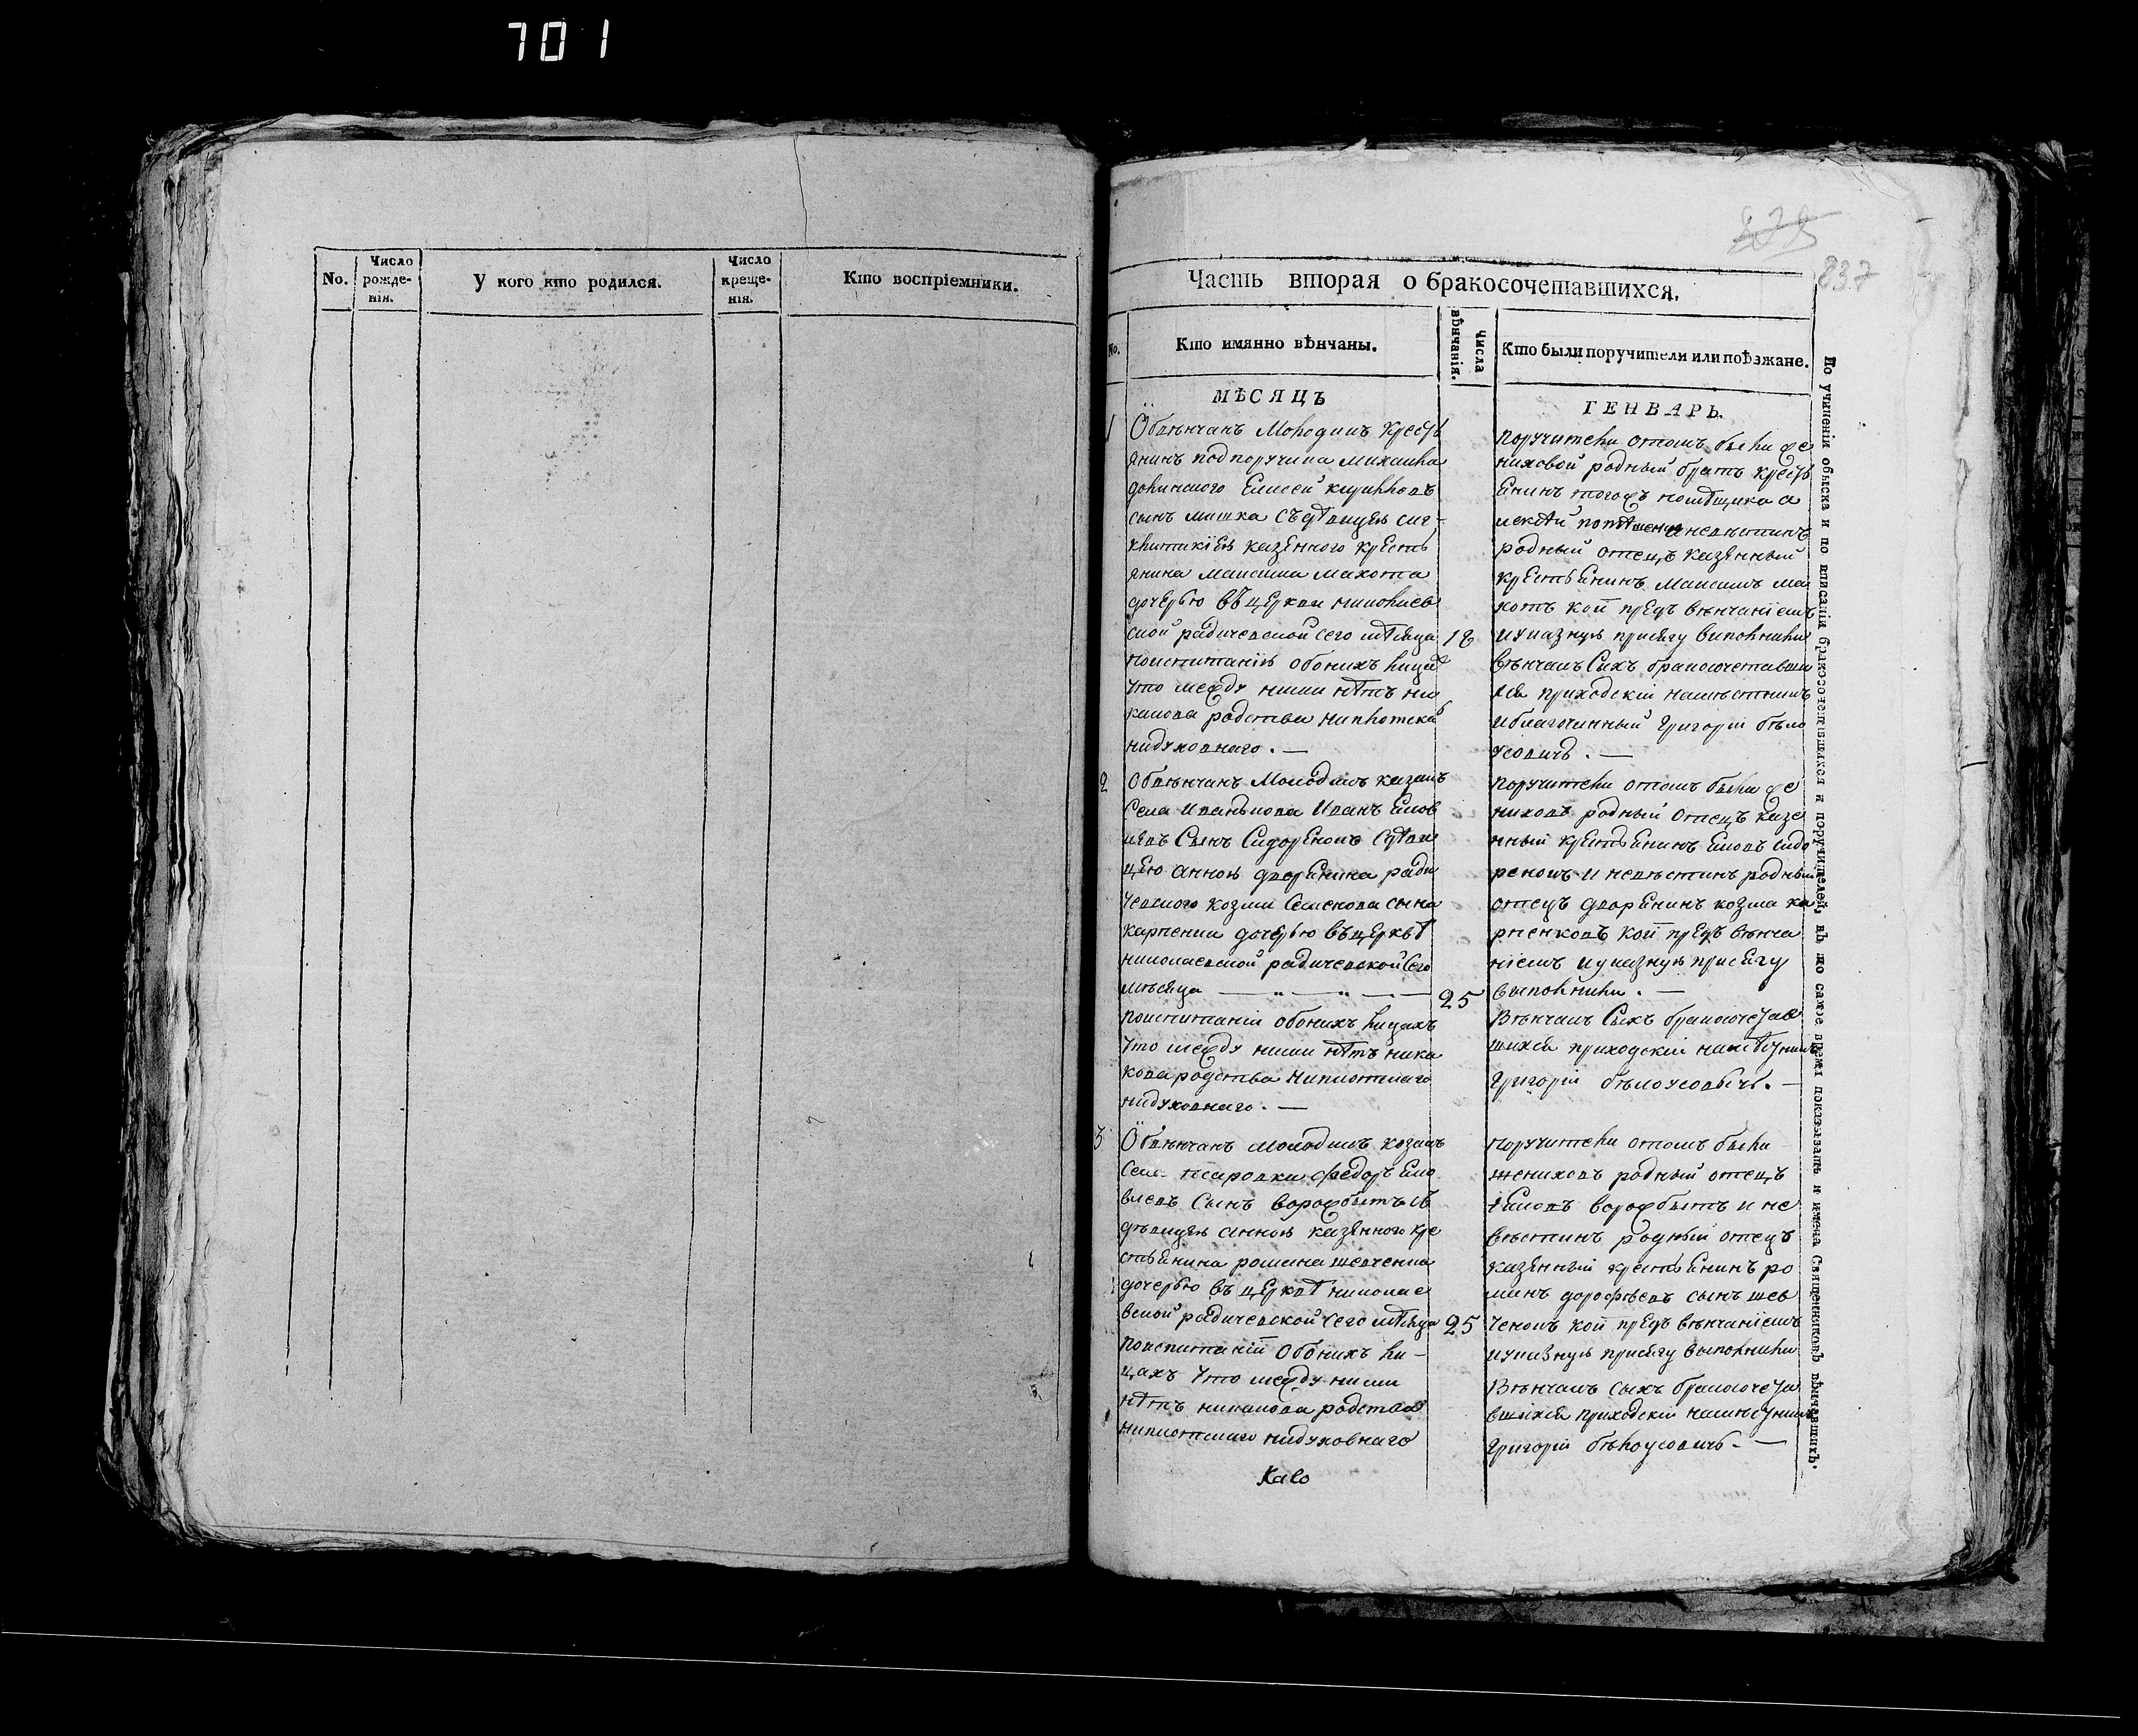 701
No.
Число рожде-
нія.
У кого кто родился.
Число креще-
нія.
Кто воспріемники.
837
Часть вторая о бракосочетавшихся.
No.
Кто имянно вѣнчаны.
Числа вѣнчанія.
Кто были поручители или поѣзжане.
МѢСЯЦЪ
ГЕНВАРЬ.
1
Обвѣнчанъ Молодикъ крест
янинъ подпоручика михаила
долинского Елисей кириловъ
сынъ мишка съ дѣвицею
казенного крестъ
янина максима махота
дочерью въ церкви николаев
ской радичевской сего мѣсяца
18
поиспитанію обоихъ лицах
что между ними нѣтъ ни
какова родства ниплотска
нидуховнаго. —
Поручители отомъ были же
ниховой родный братъ крест
Енинъ тогожъ помѣщика а
и невѣстинъ
родный отецъ казенный
крестьЕнинъ максимъ ма
хотъ кои предъ вѣнчаніемъ
иуказную присягу виполнили
вѣнчалъ Сихъ бракосочетавши
ся приходскій намѣстникъ
иблагочинный григорій бѣло
усовичъ. —
2
Обвѣнчанъ Молодикъ казакъ
Села иванькова Иванъ Еков
левъ Сынъ Сидоренокъ съ дѣви
цею анною дворЕнина ради
чевского козми Семенова сына
карпенка дочерью въ церквѣ
николаевской радичевской Сего
мѣсяца — „ — „ — —
25
поиспитаніи обоихъ лицахъ
что между ними нѣтъ ника
кова родства ниплотскаго
нидуховнаго. —
Поручители отомъ были же
никовъ родный отецъ казе
нный крестьЕнинъ Ековъ сидо
ренокъ и невѣстинъ родный
отецъ дворЕнинъ козма ка
рпенковъ кои предъ вѣнча
ніемъ иуказную присЕгу
виполнили. —
Вѣнчалъ Сихъ бракосочетав
шихся приходскій намѣстникъ
григорій бѣлоусовичъ. —
3
Обвѣнчанъ молодикъ козакъ
Села псаровки Федоръ Еко
влевъ Сынъ ворожбитъ съ
дѣвицею анною казенного кре
стьЕнина романа шевченка
дочерью въ церквѣ николае
вской радичевской сего мѣсяца
25
поиспитаніи обоихъ ли-
цахъ что между ними
нѣтъ никакова родства
ниплотскаго нидуховнаго
Поручители отомъ были
жениховъ родный отецъ
Ековъ ворожбитъ и не
вѣстинъ родный отецъ
казенный крестьЕнинъ ро
манъ дорофѣевъ сынъ шев
ченокъ кои предъ вѣнчаніемъ
иуказную присягу виполнили
Вѣнчалъ сихъ бракосочета
вшихся приходскій намѣстникъ
григорій бѣлоусовичъ. —
По учиненіи обыска и по вписаніи бракосочетавшихся и поручителей, въ то самое время показывать и имена Священниковъ вѣнчавшихъ.